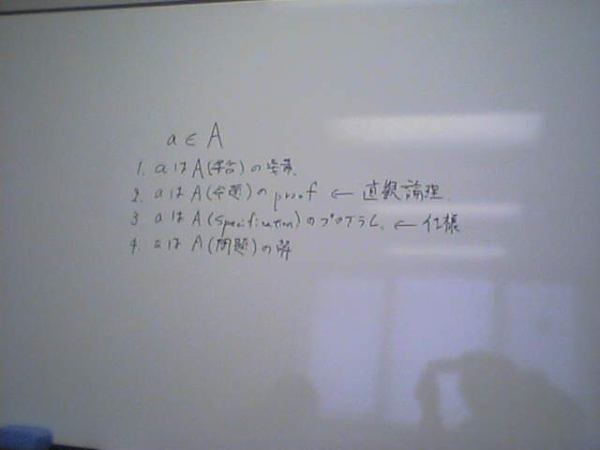 a ∈ A
1. aはA(集合)の要素.
2. aはA(命題)のproof ← 直観論理.
3 aはA(Specification)のプログラム. ← 仕様
4. aはA(問題)の解